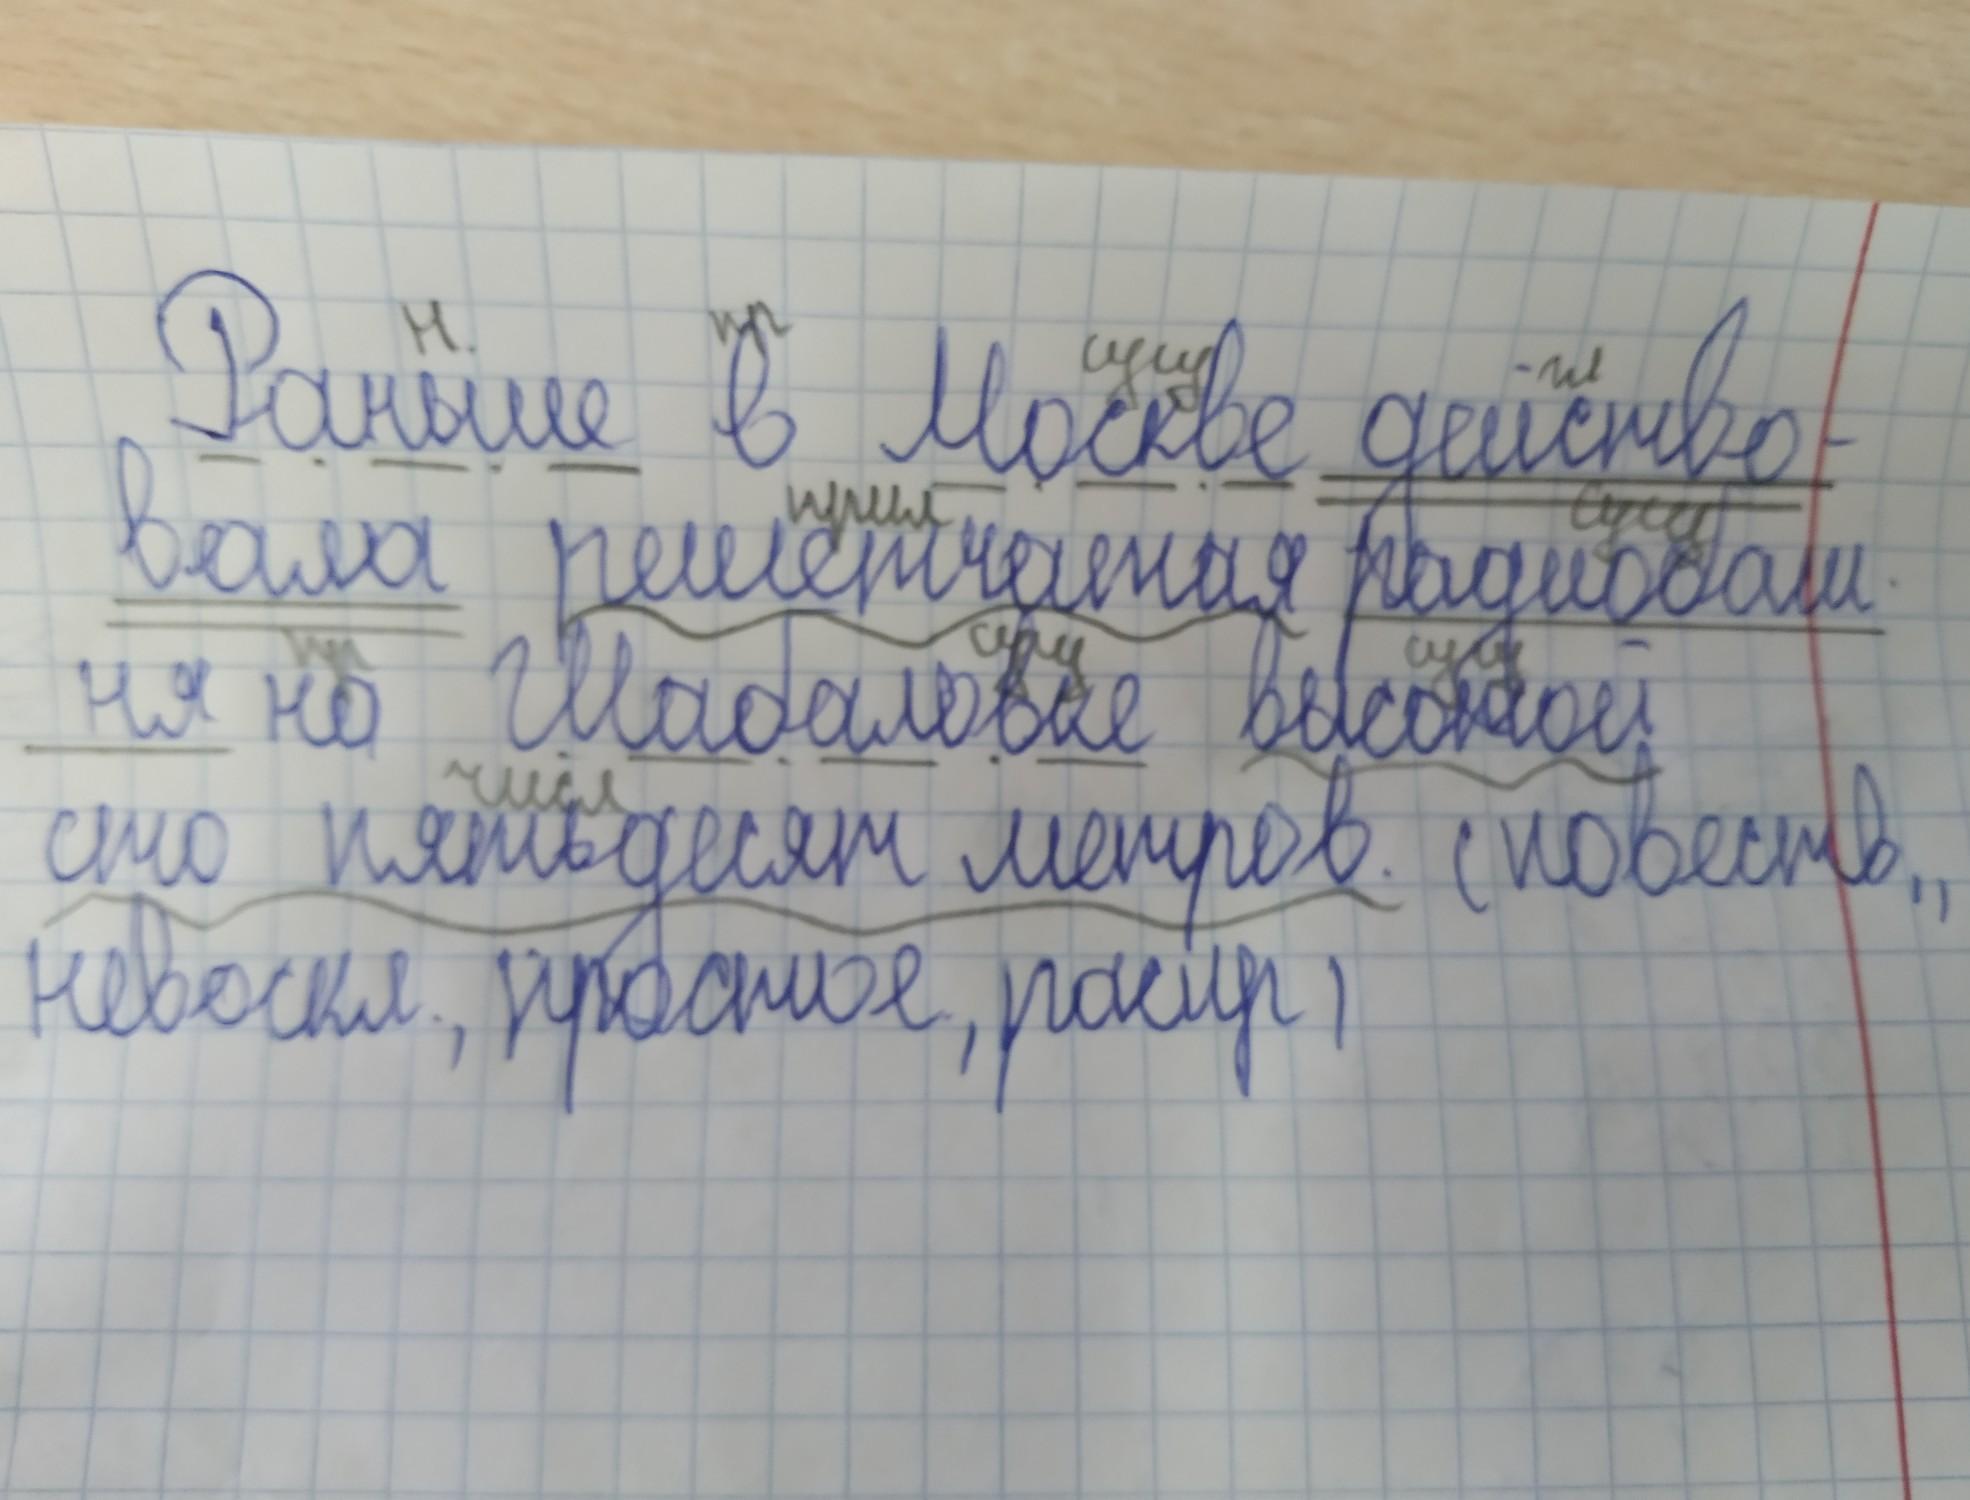 н. пр сущ гл
Раньше в Москве действо-
прил сущ
вала решетчатая радиобаш-
пр сущ сущ
ня на Шаболовке высотой
числ
сто пятьдесят метров. (повеств.,
невоскл., простое, распр)